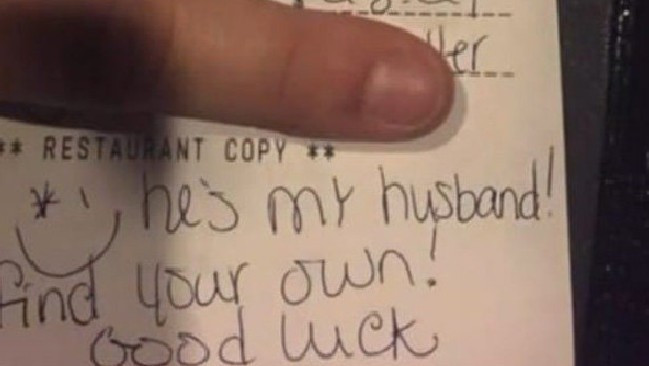 ** RESTAURANT COPY **
he's my husband!
find your own!
Good luck